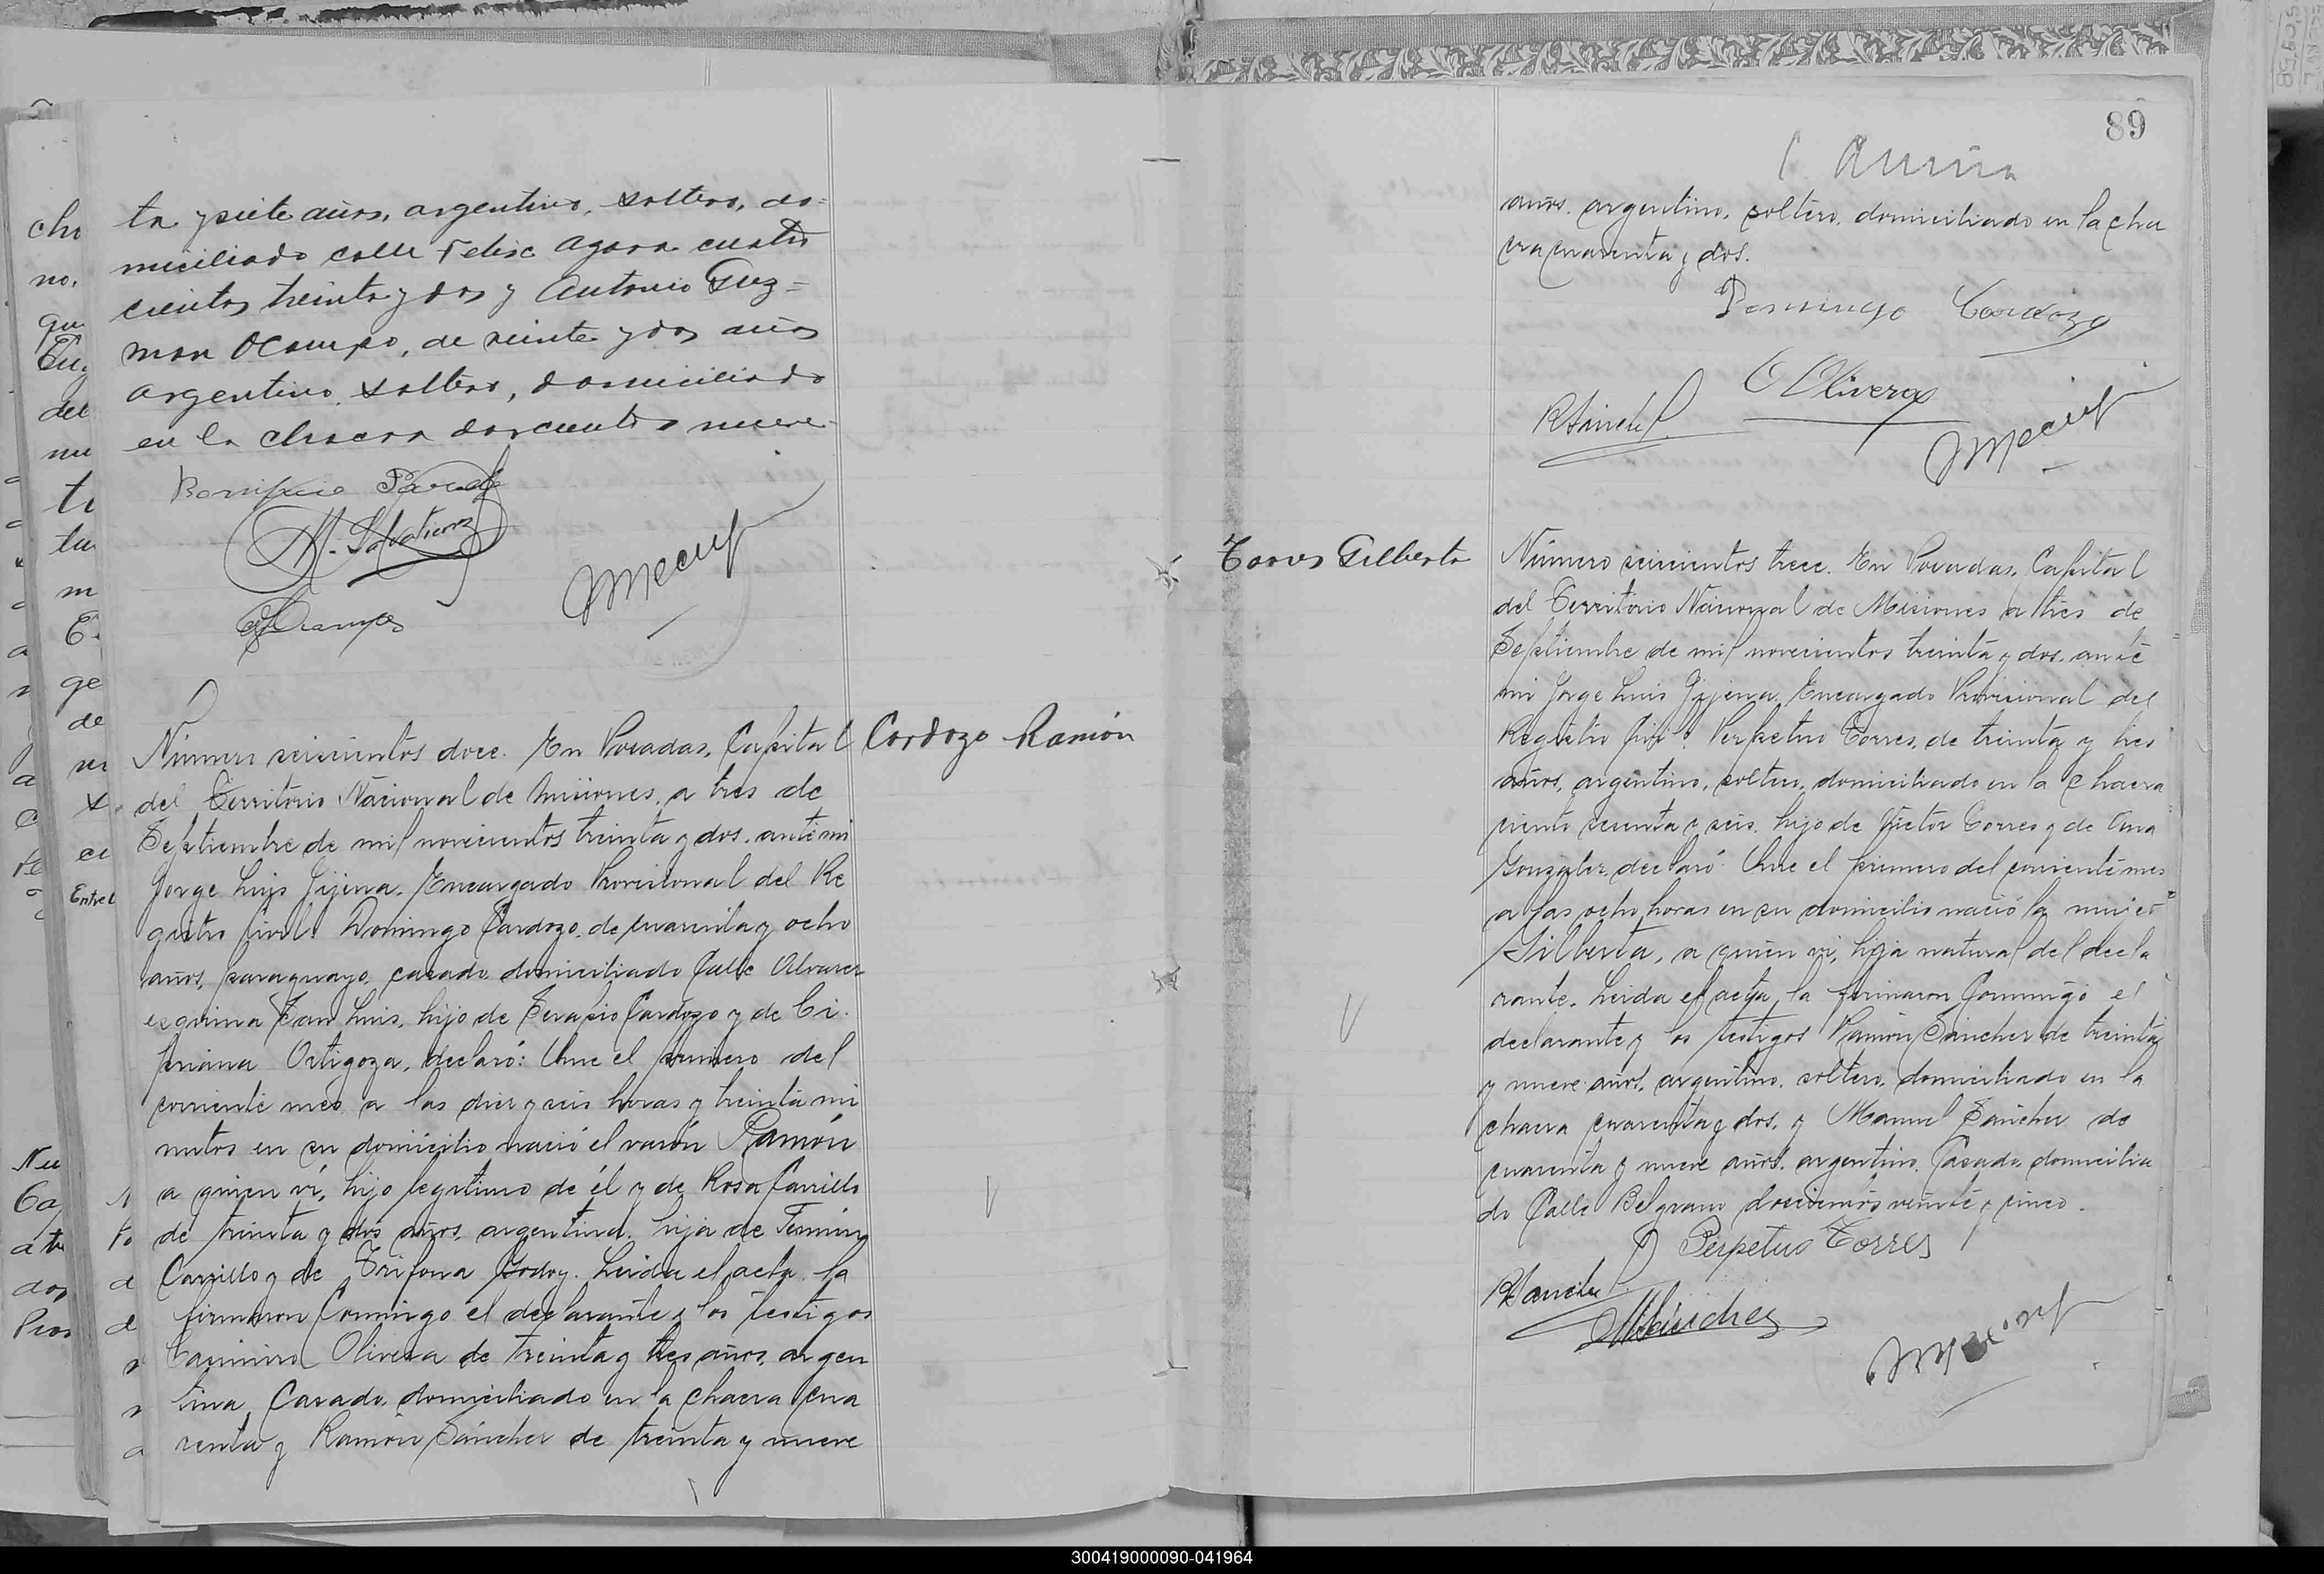 ta y siete años, argentino, soltero, do=
miciliado calle Felix Azara cuatro
cientos treinta y dos y Antonio Guz=
man Ocampo, de veinte y dos años
argentino, soltero, domiciliado
en la chacra doscientos nueve
Número seiscientos doce. En Posadas, Capital
Cardozo Ramón
del Territorio Nacional de Misiones, a tres de
Septiembre de mil novecientos treinta y dos, ante mi
Jorge Luis Jijena, Encargado Provisional del Re
gistro Civil: Domingo Cardozo, de cuarenta y ocho
años, paraguayo, casado, domiciliado Calle Alvarez
esquina San Luis, hijo de Serapio Cardozo y de Ci
priana Ortigoza, declaró: Que el primero del
corriente mes a las diez y seis horas y treinta mi
nutos en su domicilio nació el varón Ramón
a quien vi, hijo legitimo de él y de Rosa Carrillo
de treinta y dos años, argentina, hija de Fermin
Carrillo y de Trifona Godoy. Leida el acta, la
firmaron conmigo el declarante y los testigos
Casimiro Olivera de treinta y tres años, argen
tino, Casado, domiciliado en la chacra cua
renta y Ramón Sánchez de treinta y nueve
89
años, argentino, soltero, domiciliado en la cha
cra cuarenta y dos.
Domingo Cardozo
C Olivera
Torres Gilberta
Número seiscientos trece. En Posadas, Capital
del Territorio Nacional de Misiones a tres de
Septiembre de mil novecientos treinta y dos, ante
mi Jorge Luis Jijena, Encargado Provisional del
Registro Civil: Perpetuo Torres, de treinta y tres
años, argentino, soltero, domiciliado en la chacra
ciento sesenta y seis, hijo de Victor Torres y de Ana
Gonzalez, declaró: Que el primero del corriente mes
a las ocho horas en su domicilio nació la mujer
Gilberta, a quien vi, hija natural del decla
rante. Leida el acta, la firmaron conmigo el
declarante y los testigos Ramón Sánchez de treinta
y nueve años, argentino, soltero, domiciliado en la
chacra cuarenta y dos, y Manuel Sánchez de
cuarenta y nueve años, argentino, Casado, domicilia
do Calle Belgrano doscientos veinte y cinco.
Perpetuo Torres
R Sanchez
M Sánchez
300419000090-041964